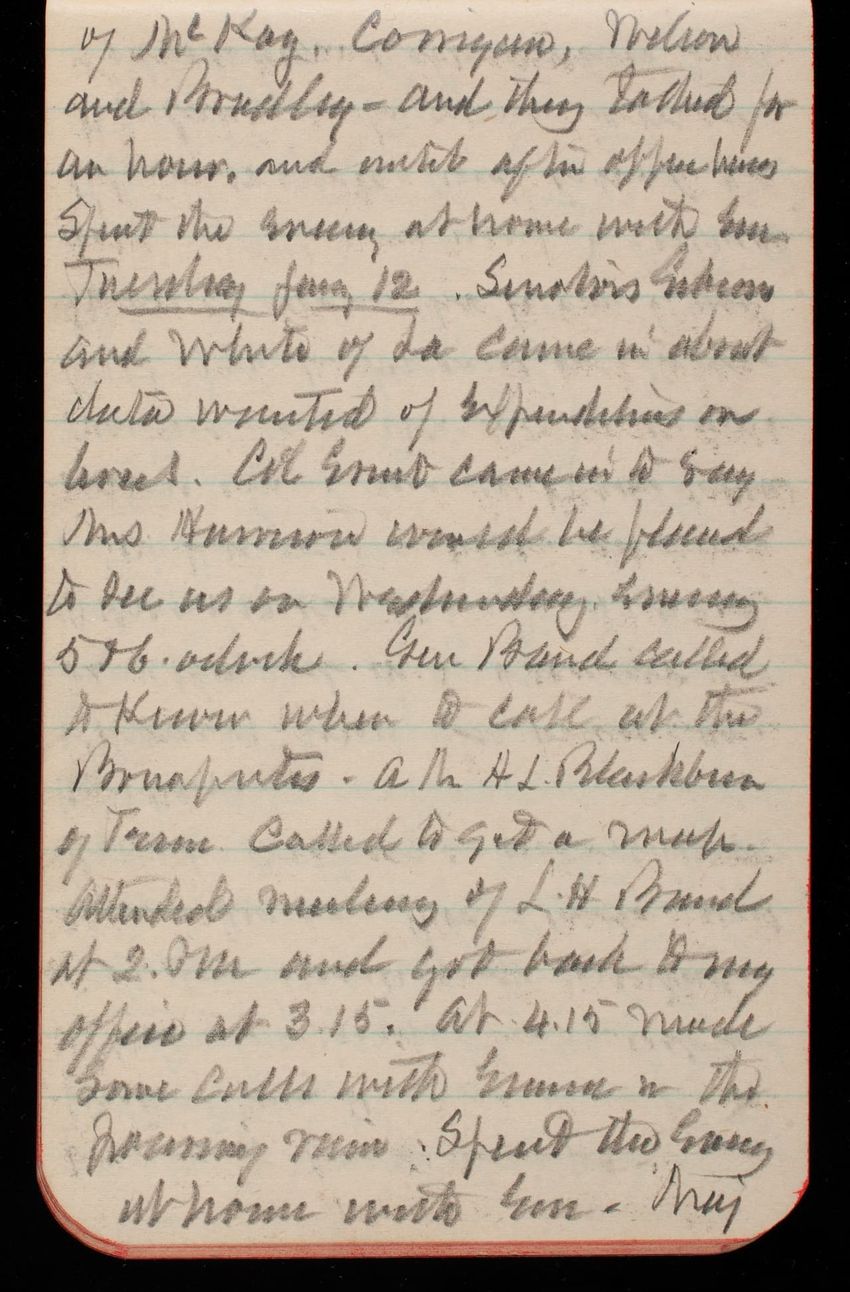 of McKay, Corrigan, Wilson
and Bradley - and they talked for
an hour, and until after office hours
Spent the evening at home with Em
Tuesday Jany 12. Senators Gibson
and White of La came in about
data wanted of Expenditures on
levees. Col Ernst came in to say
Mrs Harrison would be pleased
to see us on Wednesday Evening
5 to 6 oclock. Gen Band called
to Know when to call at the
Bonapartes - A Mr H L Blackburn
of Tenn called to get a map.
Attended meeting of L. H Board
at 2. PM and got back to my
office at 3 15. At 4.15 made
some calls with Emma in the
pouring rain. Spent the Evening
at home with Em - Maj